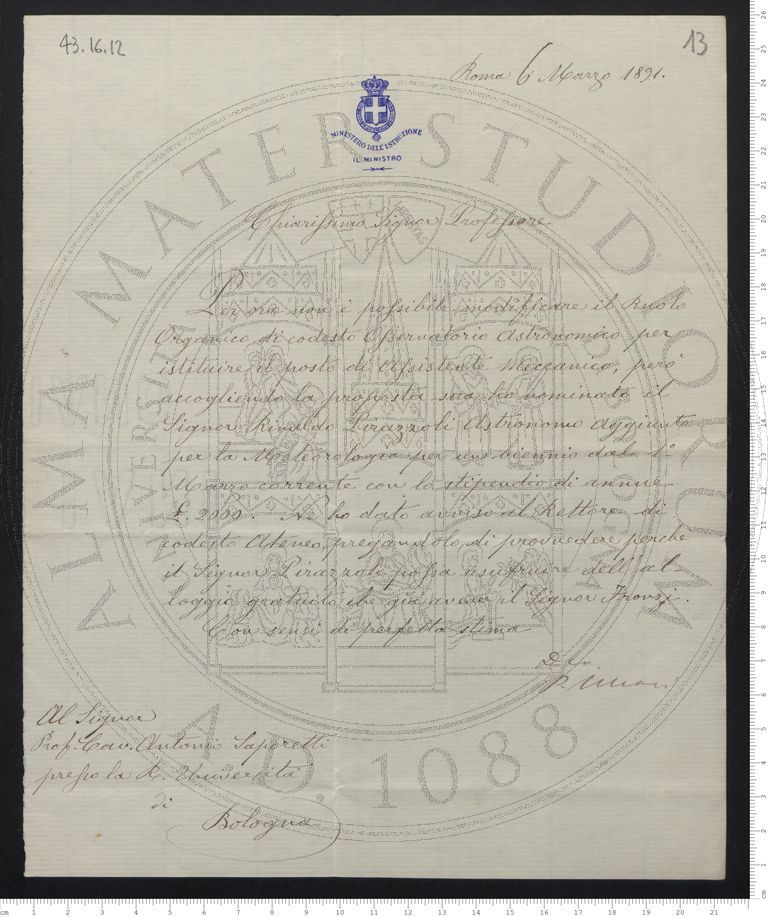 43.16.12
13
Roma 6 Marzo 1891.
MINISTERO DELL'ISTRUZIONE
IL MINISTRO
Chiarissimo Signor Professore
Per ora non è possibile modificare il Ruolo
Organico di codesto Osservatorio Astronomico per
istituire il posto di Assistente Meccanico, però
accogliendo la proposta sua ho nominato il
Signor Rinaldo Pirazzoli Astronomo aggiunto
per la Meteorologia per un biennio dal 1°
Marzo corrente con lo stipendio di annue
£. 2000. Ne ho dato avviso al Rettore di
codesto Ateneo, pregandolo di provvedere perchè
il Signor Pirazzoli possa usufruire dell'al
loggio gratuito che già aveva il Signor Fronzi.
Con sensi di perfetta stima
Al Signor
Prof. Cav. Antonio Saporetti
presso la R. Università
di
Bologna
ALMA MATER STUDIORUM
A.D. 1088